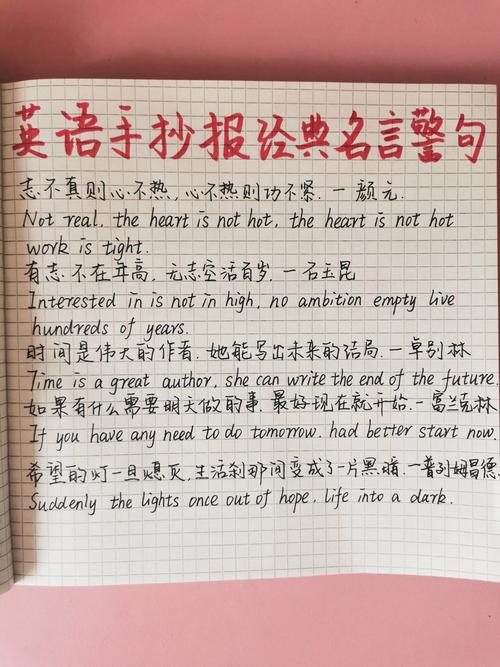 英语手抄报经典名言警句
志不真则心不热,心不热则功不紧.一颜元.
Not real, the heart is not hot, the heart is not hot
work is tight.
有志不在年高,无志空活百岁.一石玉昆
Interested in is not in high, no ambition empty live
hundreds of years.
时间是伟大的作者.她能写出未来的结局.一卓别林
Time is a great author, she can write the end of the future.
如果有什么需要明天做的事.最好现在就开始.一富兰克林
If you have any need to do tomorrow. had better start now.
希望的灯一旦熄灭,生活刹那间变成了一片黑暗.一普列姆昌德.
Suddenly the lights once out of hope, life into a dark.